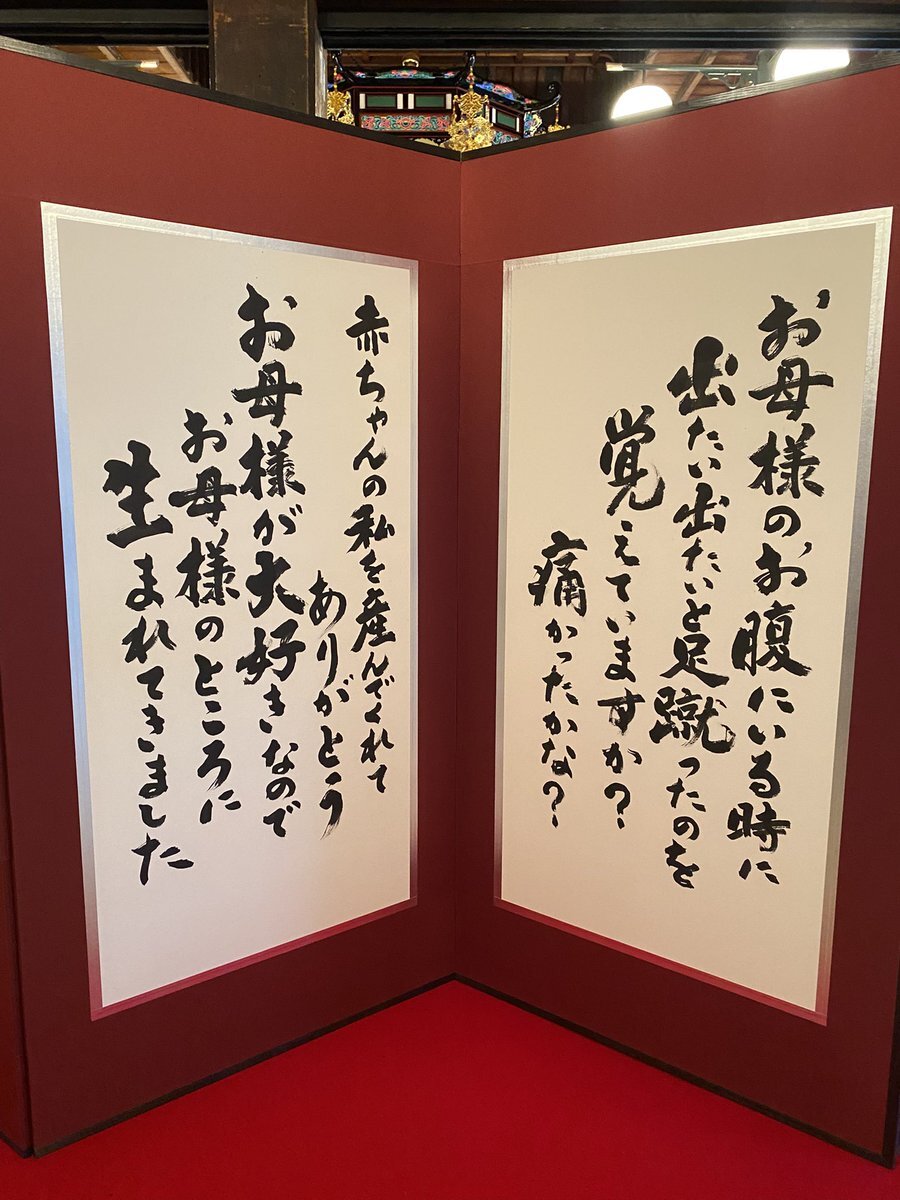 お母様のお腹にいる時に
出たい出たいと足蹴ったのを
覚えていますか？
痛かったかな？
赤ちゃんの私を産んでくれて
ありがとう
お母様が大好きなので
お母様のところに
生まれてきました